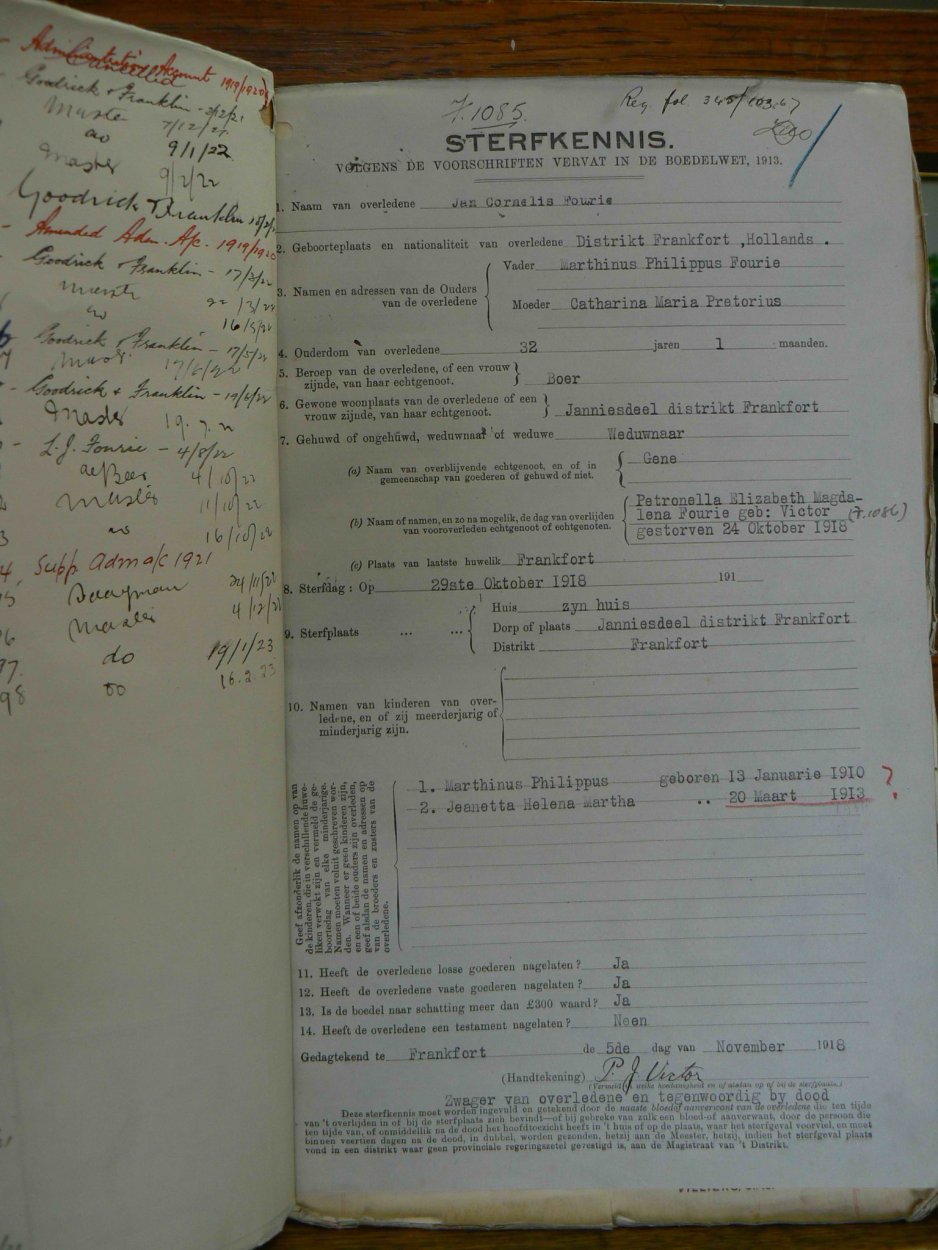 Administration Account 1919/1920
Cancelled
Goodrick & Franklin - 2/2/21
Master 7/12/21
do 9/1/22
Master 9/2/22
Goodrick & Franklin
- Amended Adm. A/c. 1919/1920
Goodrick & Franklin - 17/3/22
Master 22/3/22
do 16/5/22
Goodrick & Franklin - 17/5/22
Master 17/6/22
- Goodrick & Franklin - 19/6/22
Master 19.7.22
- L. J. Fourie - 4/8/22
de Beer 4/10/22
Master 11/10/22
do 16/10/22
4, Supp. Adm a/c 1921
Daayman 24/11/22
96 Master 4/12/22
97. do 19/1/23
98 do 16.2.23
7.1085.
Reg. fol. 345/103.67
STERFKENNIS.
VOLGENS DE VOORSCHRIFTEN VERVAT IN DE BOEDELWET, 1913.
1. Naam van overledene Jan Cornelis Fourie
2. Geboorteplaats en nationaliteit van overledene Distrikt Frankfort ,Hollands .
3. Namen en adressen van de Ouders van de overledene
Vader Marthinus Philippus Fourie
Moeder Catharina Maria Pretorius
4. Ouderdom van overledene 32 jaren 1 maanden.
5. Beroep van de overledene, of een vrouw
zijnde, van haar echtgenoot. Boer
6. Gewone woonplaats van de overledene of een
vrouw zijnde, van haar echtgenoot. Janniesdeel distrikt Frankfort
7. Gehuwd of ongehuwd, weduwnaar of weduwe Weduwnaar
(a) Naam van overblijvende echtgenoot, en of in
gemeenschap van goederen of gehuwd of niet. Gene
(b) Naam of namen, en zo na mogelik, de dag van overlijden
van vooroverleden echtgenoot of echtgenoten.
Petronella Elizabeth Magda-
lena Fourie geb: Victor (7.1086)
gestorven 24 Oktober 1918
(c) Plaats van laatste huwelik Frankfort
8. Sterfdag: Op 29ste Oktober 1918 191
9. Sterfplaats ... ...
Huis zyn huis
Dorp of plaats Janniesdeel distrikt Frankfort
Distrikt Frankfort
10. Namen van kinderen van over-
ledene, en of zij meerderjarig of
minderjarig zijn.
Geef afzonderlik de namen op van
de kinderen, die in verschillende huwe-
liken verwekt zijn en vermeld de ge-
boortedag van elke minderjarige.
Namen moeten voluit geschreven wor-
den. Wanneer er geen kinderen zijn,
en een of beide ouders zijn overleden,
geef alsdan de namen en adressen op
van de broeders en zusters van de
overledene.
1. Marthinus Philippus geboren 13 Januarie 1910 ?
2. Jeanetta Helena Martha .. 20 Maart 1913
11. Heeft de overledene losse goederen nagelaten? Ja
12. Heeft de overledene vaste goederen nagelaten? Ja
13. Is de boedel naar schatting meer dan £300 waard? Ja
14. Heeft de overledene een testament nagelaten? Neen
Gedagtekend te Frankfort de 5de dag van November 1918
(Handtekening) P. J. Victor
(Vermeld in welke hoedanigheid en of alsdan op of bij de sterfplaats.)
Zwager van overledene en tegenwoordig by dood
Deze sterfkennis moet worden ingevuld en getekend door de naaste bloed of aanverwant van de overledene die ten tijde
van 't overlijden in of bij de sterfplaats zich bevindt—of bij gebreke van zulk een bloed-of aanverwant, door de persoon die
ten tijde van, of onmiddellik na de dood het hoofdtoezicht heeft in 't huis of op de plaats, waar het sterfgeval voorviel, en moet
binnen veertien dagen na de dood, in dubbel, worden gezonden, hetzij aan de Meester, hetzij, indien het sterfgeval plaats
vond in een distrikt waar geen provinciale regeringszetel gevestigd is, aan de Magistraat van 't Distrikt.